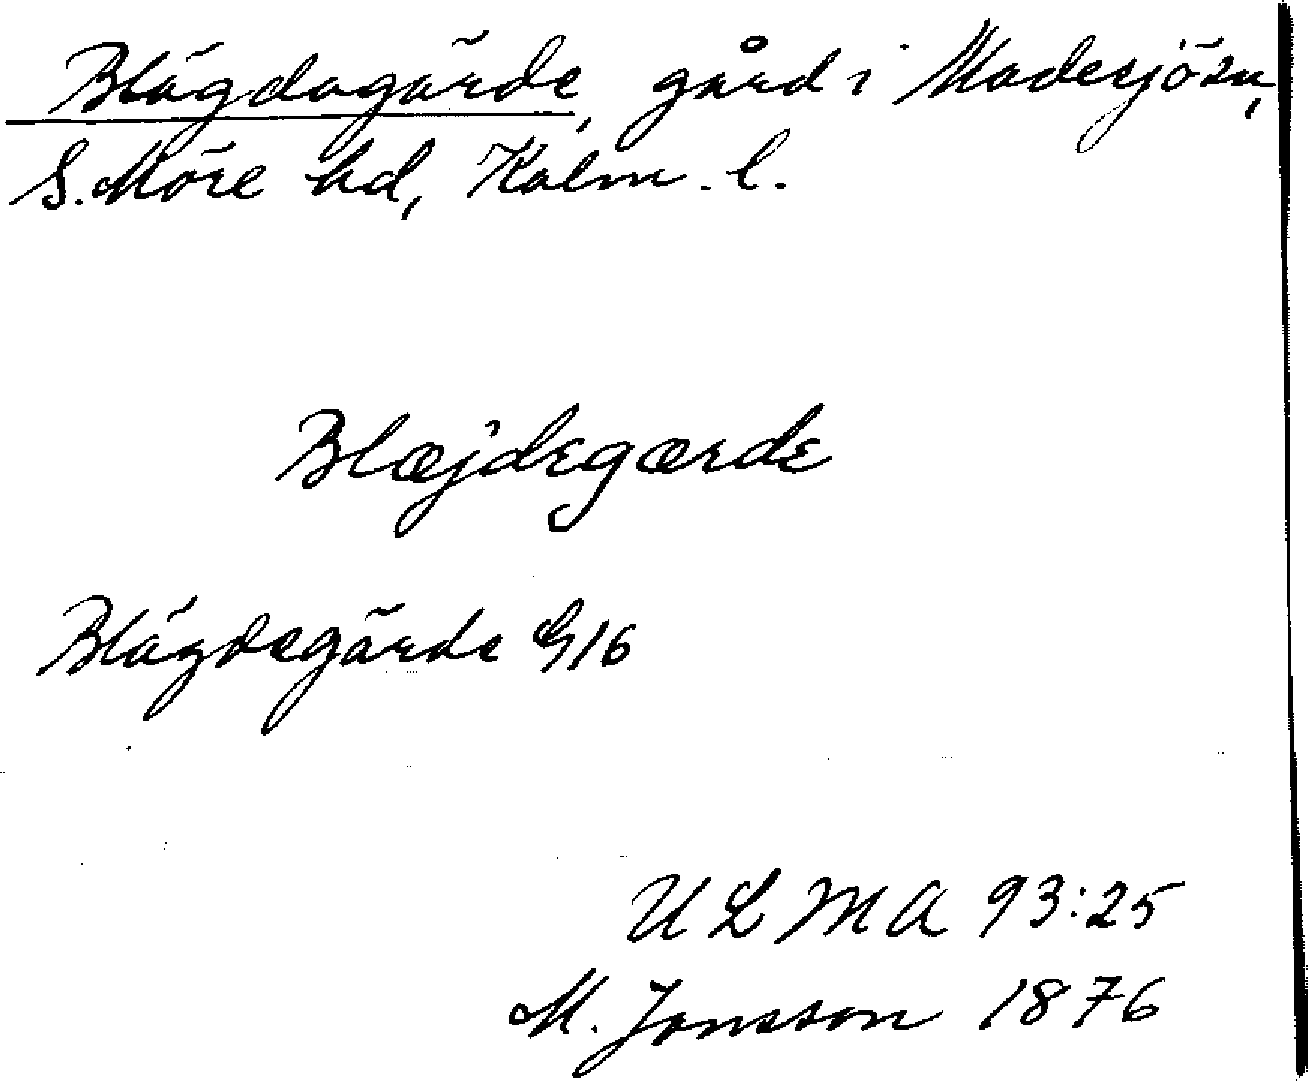 Blägdagärde, gård i Madesjö sn,
S. Möre hd, Kalm. l.
Blæjdegærde
Blägdegärde G16
ULMA 93:25
M. Jonsson 1876